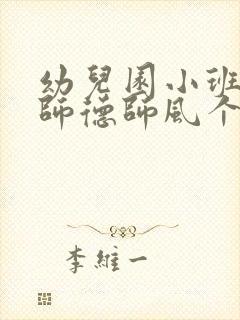 幼兒園小班
師德師風个
李維一